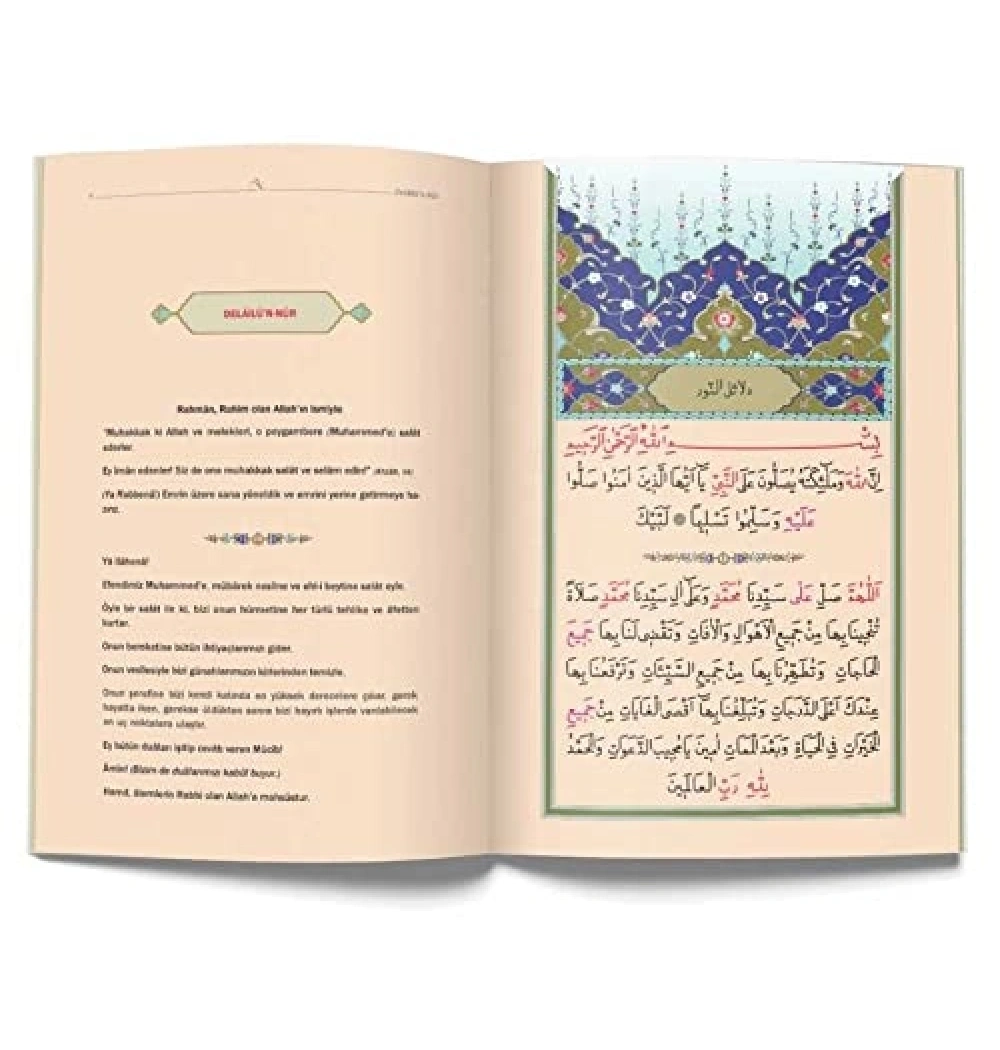 DELÂİLÜ'N-NÛR
Rahmân, Rahîm olan Allah'ın ismiyle
"Muhakkak ki Allah ve melekleri, o peygambere (Muhammed'e) salât
ederler.
Ey îmân edenler! Siz de ona muhakkak salât ve selâm edin!"
(Ya Rabbenâ!) Emrin üzere sana yöneldik ve emrini yerine getirmeye ha-
zırız.
Yâ İlâhenâ!
Efendimiz Muhammed'e, mübârek nesline ve ehl-i beytine salât eyle.
Öyle bir salât ile ki, bizi onun hürmetine her türlü tehlike ve âfetten
kurtar.
Onun bereketine bütün ihtiyaçlarımızı gider.
Onun vesîlesiyle bizi günahlarımızın kirlerinden temizle.
Onun şerefine bizi kendi katında en yüksek derecelere çıkar, gerek
hayatta iken, gerekse öldükten sonra bizi hayırlı işlerde varılabilecek
en uç noktalara ulaştır.
Ey bütün duâları işitip cevâb veren Mücîb!
Âmîn! (Bizim de duâlarımızı kabûl buyur.)
Hamd, âlemlerin Rabbi olan Allah'a mahsûstur.
دلائل النور
بِسْمِ اللّٰهِ الرَّحْمٰنِ الرَّحِيمِ
اِنَّ اللّٰهَ وَمَلٰٓئِكَتَهُ يُصَلُّونَ عَلَى النَّبِيِّ يَٓا اَيُّهَا الَّذِينَ اٰمَنُوا صَلُّوا
عَلَيْهِ وَسَلِّمُوا تَسْلِيمًا لَبَّيْكَ
اَللّٰهُمَّ صَلِّ عَلٰى سَيِّدِنَا مُحَمَّدٍ وَعَلٰٓى اٰلِ سَيِّدِنَا مُحَمَّدٍ صَلَاةً
تُنْجِينَا بِهَا مِنْ جَمِيعِ الْاَهْوَالِ وَالْاٰفَاتِ وَتَقْضِى لَنَا بِهَا جَمِيعَ
الْحَاجَاتِ وَتُطَهِّرُنَا بِهَا مِنْ جَمِيعِ السَّيِّئَاتِ وَتَرْفَعُنَا بِهَا
عِنْدَكَ اَعْلَى الدَّرَجَاتِ وَتُبَلِّغُنَا بِهَٓا اَقْصَى الْغَايَاتِ مِنْ جَمِيعِ
الْخَيْرَاتِ فِي الْحَيَاةِ وَبَعْدَ الْمَمَاتِ اٰمِينَ يَا مُجِيبَ الدَّعَوَاتِ وَالْحَمْدُ
لِلّٰهِ رَبِّ الْعَالَمِينَ